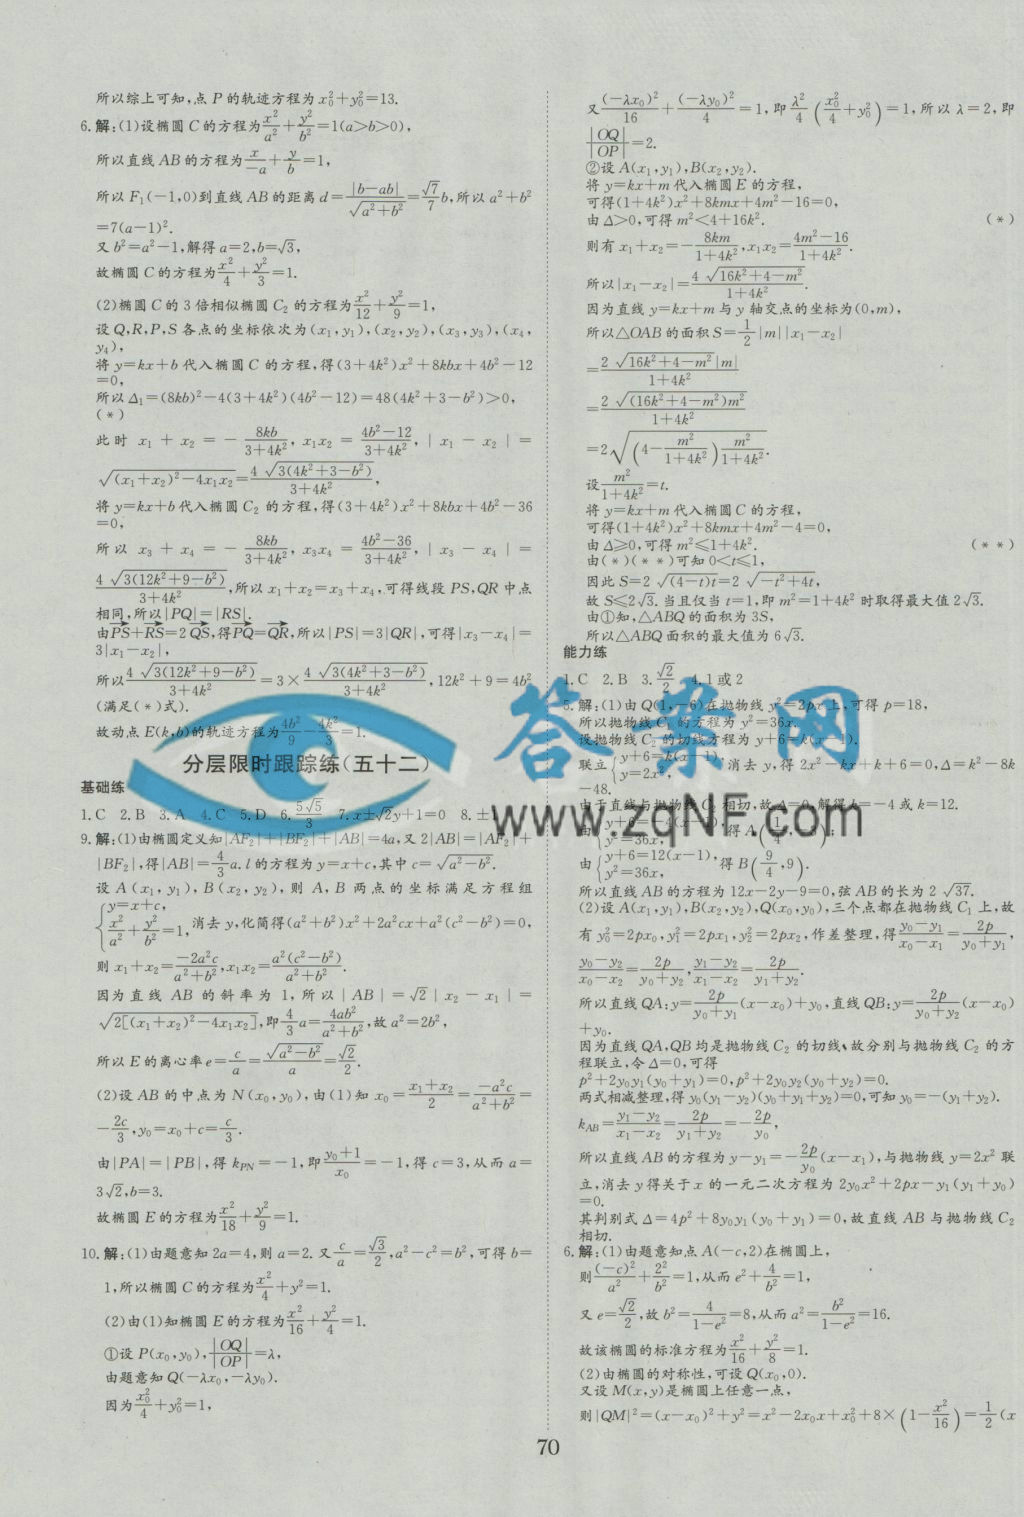 所以综上可知,点 P 的轨迹方程为 x₀²+y₀²=13.
6.解:(1)设椭圆 C 的方程为 x²/a²+y²/b²=1(a>b>0),
所以直线 AB 的方程为 x/(-a)+y/b=1,
所以 F₁(-1,0)到直线 AB 的距离 d=|b-ab|/√(a²+b²)=(√7/7)b,所以 a²+b²
=7(a-1)².
又 b²=a²-1,解得 a=2,b=√3,
故椭圆 C 的方程为 x²/4+y²/3=1.
(2)椭圆 C 的 3 倍相似椭圆 C₂ 的方程为 x²/12+y²/9=1,
设 Q,R,P,S 各点的坐标依次为(x₁,y₁),(x₂,y₂),(x₃,y₃),(x₄,
y₄),
将 y=kx+b 代入椭圆 C 的方程,得(3+4k²)x²+8kbx+4b²-12
=0,
所以 Δ₁=(8kb)²-4(3+4k²)(4b²-12)=48(4k²+3-b²)>0,
(*)
此时 x₁+x₂=-8kb/(3+4k²), x₁x₂=(4b²-12)/(3+4k²), |x₁-x₂|=
√((x₁+x₂)²-4x₁x₂)=4√(3(4k²+3-b²))/(3+4k²),
将 y=kx+b 代入椭圆 C₂ 的方程,得(3+4k²)x²+8kbx+4b²-36
=0,
所以 x₃+x₄=-8kb/(3+4k²), x₃x₄=(4b²-36)/(3+4k²), |x₃-x₄|=
4√(3(12k²+9-b²))/(3+4k²),所以 x₁+x₂=x₃+x₄,可得线段 PS,QR 中点
相同,所以|PQ|=|RS|.
由PS→+RS→=2QS→,得PQ→=QR→,所以|PS|=3|QR|,可得|x₃-x₄|=
3|x₁-x₂|,
所以 4√(3(12k²+9-b²))/(3+4k²)=3×4√(3(4k²+3-b²))/(3+4k²),12k²+9=4b²
(满足(*)式).
故动点 E(k,b)的轨迹方程为 4b²/9-4k²/3=1.
分层限时跟踪练(五十二)
基础练
1.C 2.B 3.A 4.C 5.D 6.5√5/3 7.x±√2y+1=0 8.±1
9.解:(1)由椭圆定义知|AF₂|+|BF₂|+|AB|=4a,又2|AB|=|AF₂|+
|BF₂|,得|AB|=(4/3)a.l 的方程为 y=x+c,其中 c=√(a²-b²).
设 A(x₁,y₁),B(x₂,y₂),则 A,B 两点的坐标满足方程组
{y=x+c,
x²/a²+y²/b²=1,消去 y,化简得(a²+b²)x²+2a²cx+a²(c²-b²)=0,
则 x₁+x₂=-2a²c/(a²+b²),x₁x₂=a²(c²-b²)/(a²+b²).
因为直线 AB 的斜率为 1,所以|AB|=√2|x₂-x₁|=
√(2[(x₁+x₂)²-4x₁x₂]),即(4/3)a=4ab²/(a²+b²),故 a²=2b²,
所以 E 的离心率 e=c/a=√(a²-b²)/a=√2/2.
(2)设 AB 的中点为 N(x₀,y₀),由(1)知 x₀=(x₁+x₂)/2=-a²c/(a²+b²)=
-2c/3,y₀=x₀+c=c/3.
由|PA|=|PB|,得 kPN=-1,即(y₀+1)/x₀=-1,得 c=3,从而 a=
3√2,b=3.
故椭圆 E 的方程为 x²/18+y²/9=1.
10.解:(1)由题意知 2a=4,则 a=2.又 c/a=√3/2,a²-c²=b²,可得 b=
1,所以椭圆 C 的方程为 x²/4+y²=1.
(2)由(1)知椭圆 E 的方程为 x²/16+y²/4=1.
①设 P(x₀,y₀),|OQ|/|OP|=λ,
由题意知 Q(-λx₀,-λy₀).
因为 x₀²/4+y₀²=1,
又(-λx₀)²/16+(-λy₀)²/4=1,即 λ²/4(x₀²/4+y₀²)=1,所以 λ=2,即
|OQ|/|OP|=2.
②设 A(x₁,y₁),B(x₂,y₂).
将 y=kx+m 代入椭圆 E 的方程,
可得(1+4k²)x²+8kmx+4m²-16=0,
由 Δ>0,可得 m²<4+16k². (*)
则有 x₁+x₂=-8km/(1+4k²),x₁x₂=(4m²-16)/(1+4k²).
所以|x₁-x₂|=4√(16k²+4-m²)/(1+4k²).
因为直线 y=kx+m 与 y 轴交点的坐标为(0,m),
所以△OAB 的面积 S=(1/2)|m||x₁-x₂|
=2√(16k²+4-m²)|m|/(1+4k²)
=2√((16k²+4-m²)m²)/(1+4k²)
=2√((4-m²/(1+4k²))m²/(1+4k²)).
设 m²/(1+4k²)=t.
将 y=kx+m 代入椭圆 C 的方程,
可得(1+4k²)x²+8kmx+4m²-4=0,
由 Δ≥0,可得 m²≤1+4k². (**)
由(*)(**)可知 0<t≤1,
因此 S=2√((4-t)t)=2√(-t²+4t),
故 S≤2√3.当且仅当 t=1,即 m²=1+4k² 时取得最大值 2√3.
由①知,△ABQ 的面积为 3S,
所以△ABQ 面积的最大值为 6√3.
能力练
1.C 2.B 3.√2/2 4.1 或 2
5.解:(1)由 Q(1,-6)在抛物线 y²=2px 上,可得 p=18,
所以抛物线 C₁ 的方程为 y²=36x.
设抛物线 C₂ 的切线方程为 y+6=k(x-1).
联立{y+6=k(x-1),
y=2x², 消去 y,得 2x²-kx+k+6=0,Δ=k²-8k
-48.
由于直线与抛物线 C₂ 相切,故 Δ=0,解得 k=-4 或 k=12.
由{y+6=-4(x-1),
y²=36x, 得 A(1/4,3);
由{y+6=12(x-1),
y²=36x, 得 B(9/4,9).
所以直线 AB 的方程为 12x-2y-9=0,弦 AB 的长为 2√37.
(2)设 A(x₁,y₁),B(x₂,y₂),Q(x₀,y₀),三个点都在抛物线 C₁ 上,故
有 y₀²=2px₀,y₁²=2px₁,y₂²=2px₂,作差整理,得(y₀-y₁)/(x₀-x₁)=2p/(y₀+y₁),
(y₀-y₂)/(x₀-x₂)=2p/(y₀+y₂),(y₁-y₂)/(x₁-x₂)=2p/(y₁+y₂).
所以直线 QA:y=2p/(y₀+y₁)(x-x₀)+y₀,直线 QB:y=2p/(y₀+y₂)(x-x₀)
+y₀.
因为直线 QA,QB 均是抛物线 C₂ 的切线,故分别与抛物线 C₂ 的方
程联立,令 Δ=0,可得
p²+2y₀y₁(y₀+y₁)=0,p²+2y₀y₂(y₀+y₂)=0.
两式相减整理,得 y₀(y₁-y₂)(y₀+y₁+y₂)=0,可知 y₀=-(y₁+y₂).
kAB=(y₁-y₂)/(x₁-x₂)=2p/(y₁+y₂)=-2p/y₀,
所以直线 AB 的方程为 y-y₁=-(2p/y₀)(x-x₁),与抛物线 y=2x² 联
立,消去 y 得关于 x 的一元二次方程为 2y₀x²+2px-y₁(y₁+y₀)
=0.
其判别式 Δ=4p²+8y₀y₁(y₀+y₁)=0,故直线 AB 与抛物线 C₂
相切.
6.解:(1)由题意知点 A(-c,2)在椭圆上,
则(-c)²/a²+2²/b²=1,从而 e²+4/b²=1,
又 e=√2/2,故 b²=4/(1-e²)=8,从而 a²=b²/(1-e²)=16.
故该椭圆的标准方程为 x²/16+y²/8=1.
(2)由椭圆的对称性,可设 Q(x₀,0).
又设 M(x,y)是椭圆上任意一点,
则|QM|²=(x-x₀)²+y²=x²-2x₀x+x₀²+8×(1-x²/16)=1/2(x
70
答案网
www.zqNF.com